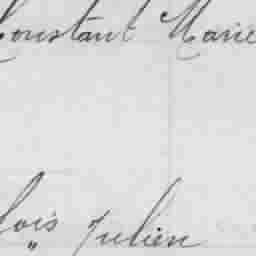 Constant Marie
lois Julien
"